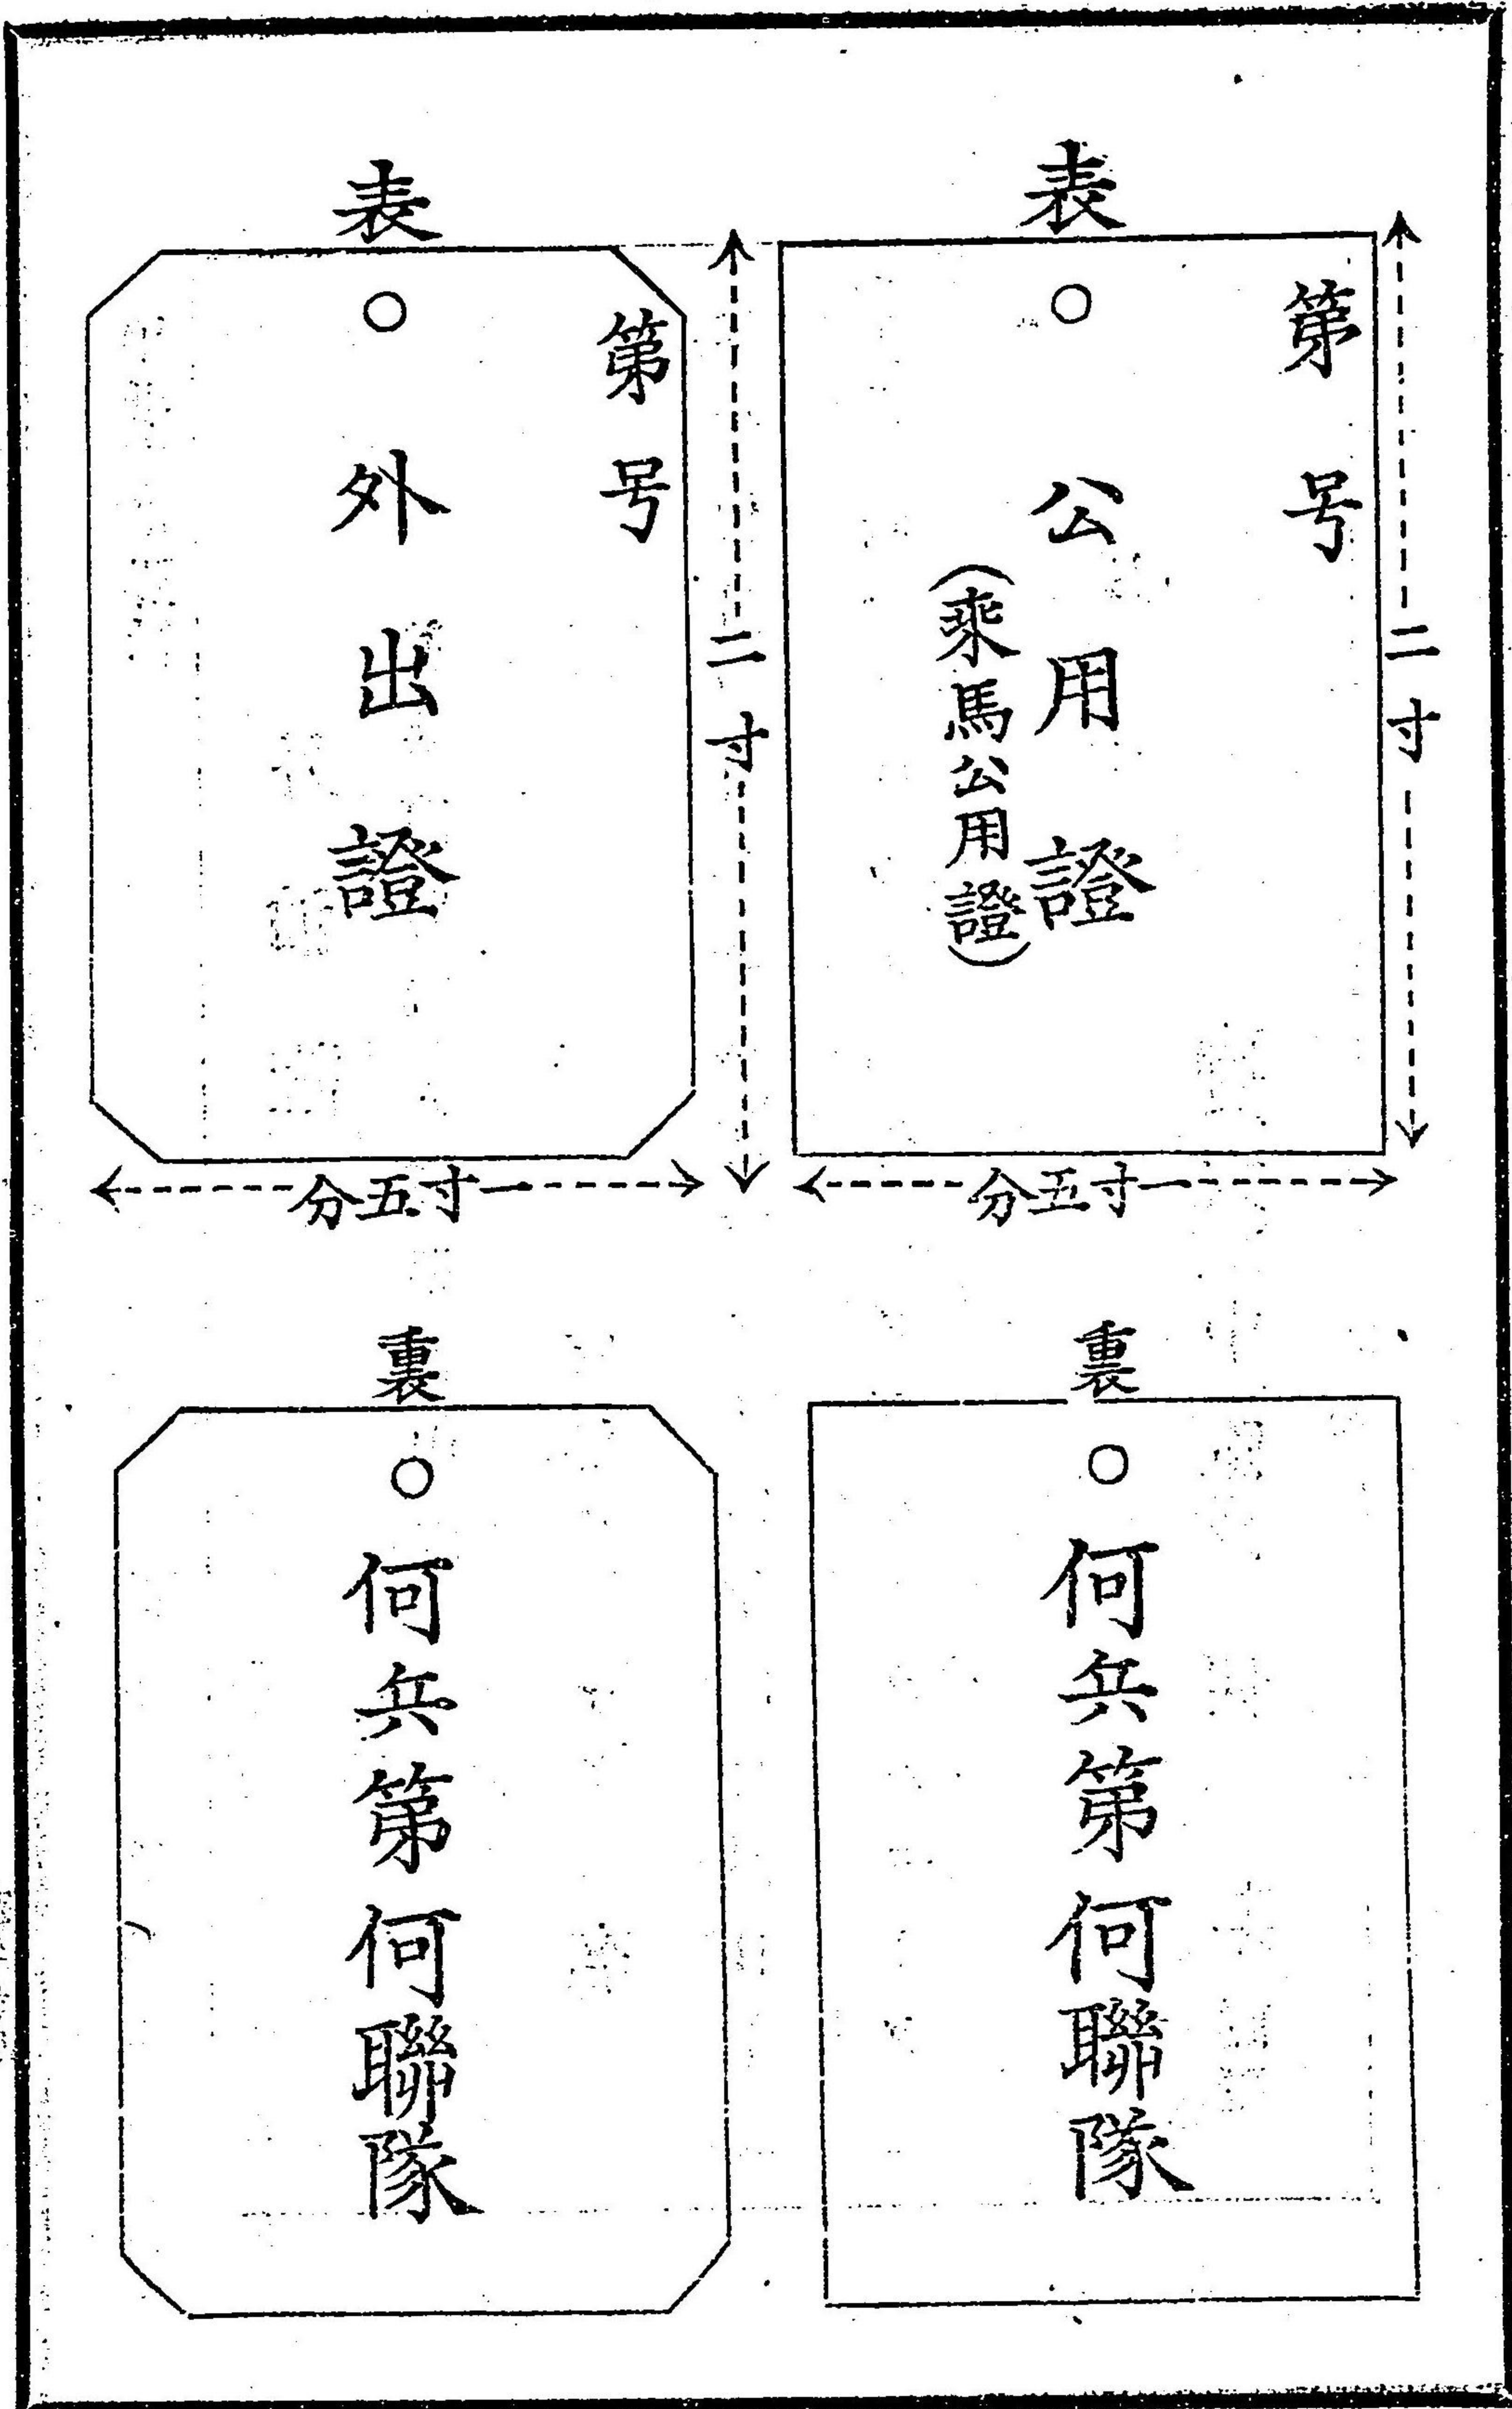 表
第号
公用證
(乘馬公用證)
二寸
一寸五分
表
第号
外出證
二寸
一寸五分
裏
何兵第何聯隊
裏
何兵第何聯隊